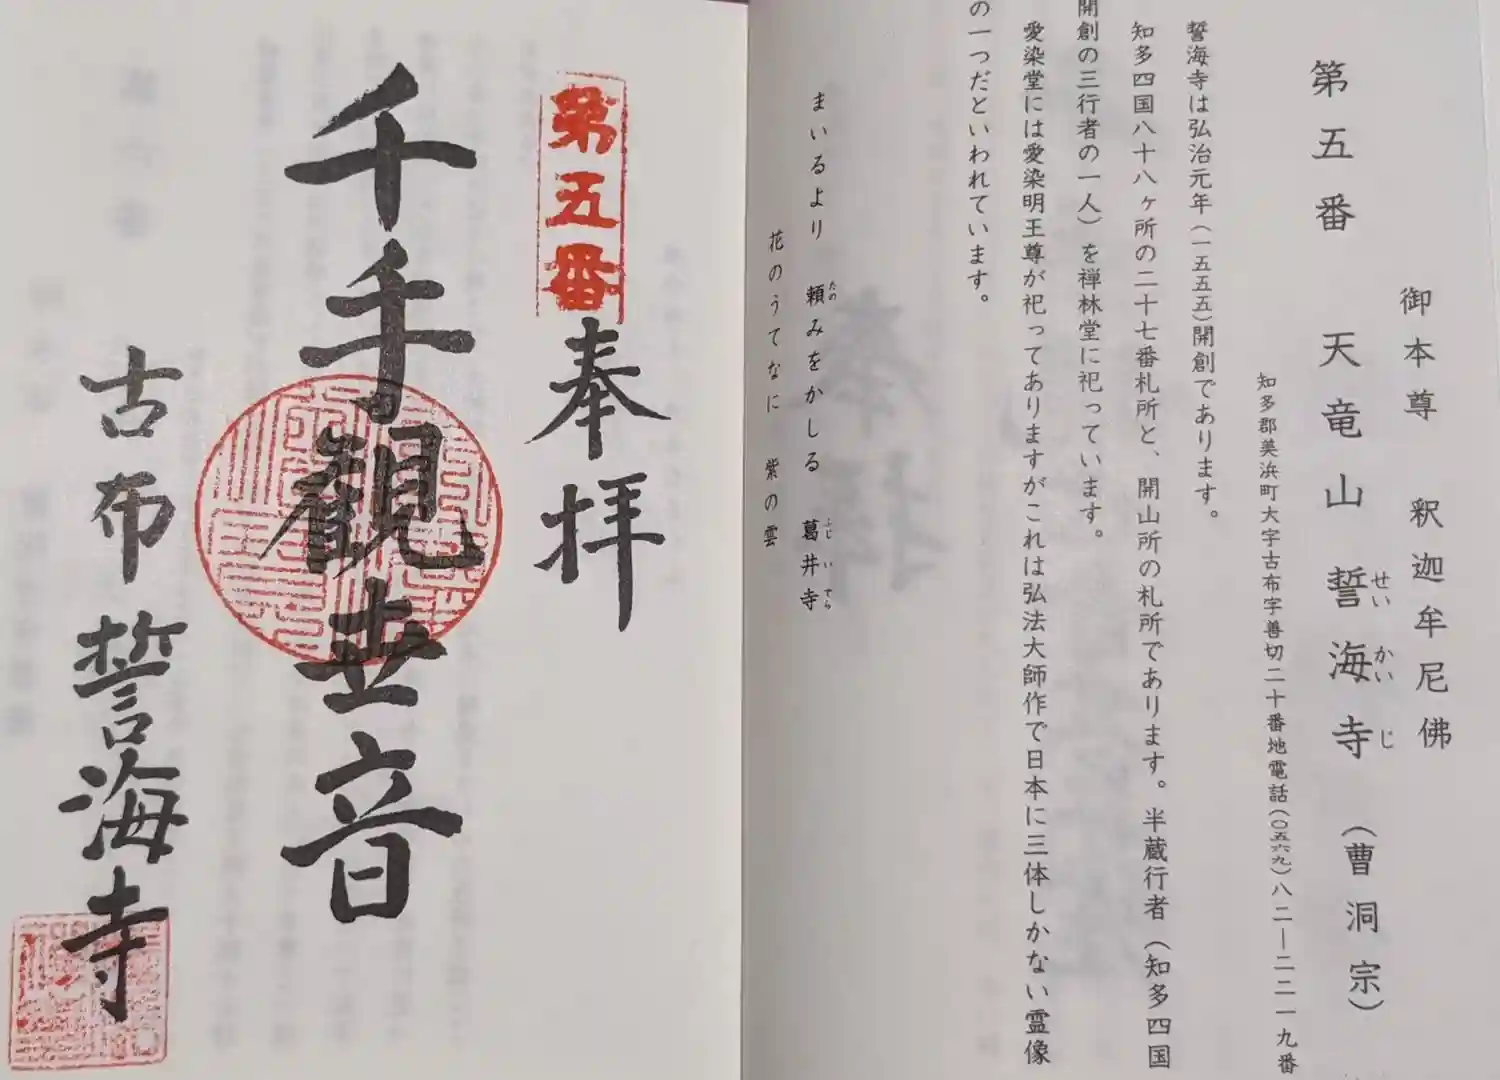 御本尊 釈迦牟尼佛
第五番 天竜山 誓海寺 (曹洞宗)
せいかいじ
知多郡美浜町大字古布字善切二十番地電話(〇五六九)八二―二二一九番
誓海寺は弘治元年(一五五五)開創であります。
知多四国八十八ヶ所の二十七番札所と、開山所の札所であります。半蔵行者(知多四国
開創の三行者の一人)を禅林堂に祀っています。
愛染堂には愛染明王尊が祀ってありますがこれは弘法大師作で日本に三体しかない霊像
の一つだといわれています。
まいるより 頼みをかしる 葛井寺
たの ふじいでら
花のうてなに 紫の雲
第五番
奉拝
千手観世音
古布 誓海寺